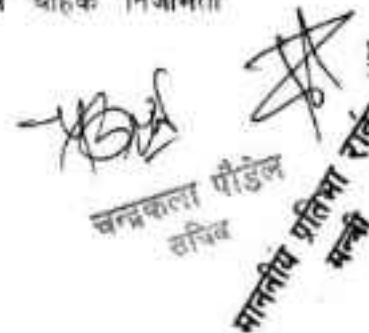 वाहक निजामती
चन्द्रकला पौडेल
सचिव
माननीय प्रतिभा
मन्त्री